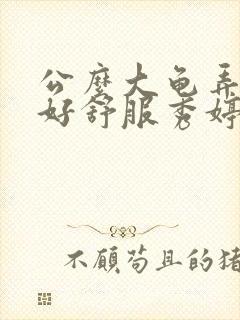 公麽大龟弄
好舒服秀婷
不顾苟且的猪